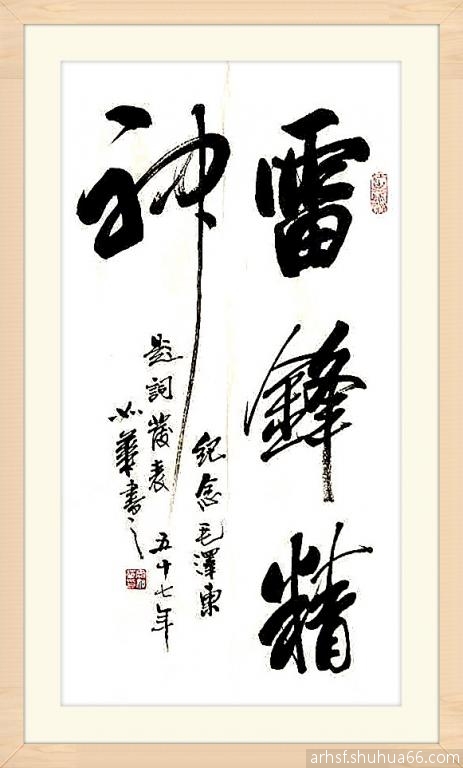 雷鋒精
神
紀念毛澤東
題詞發表 五十七年
華書之
arhsf.shuhua66.com